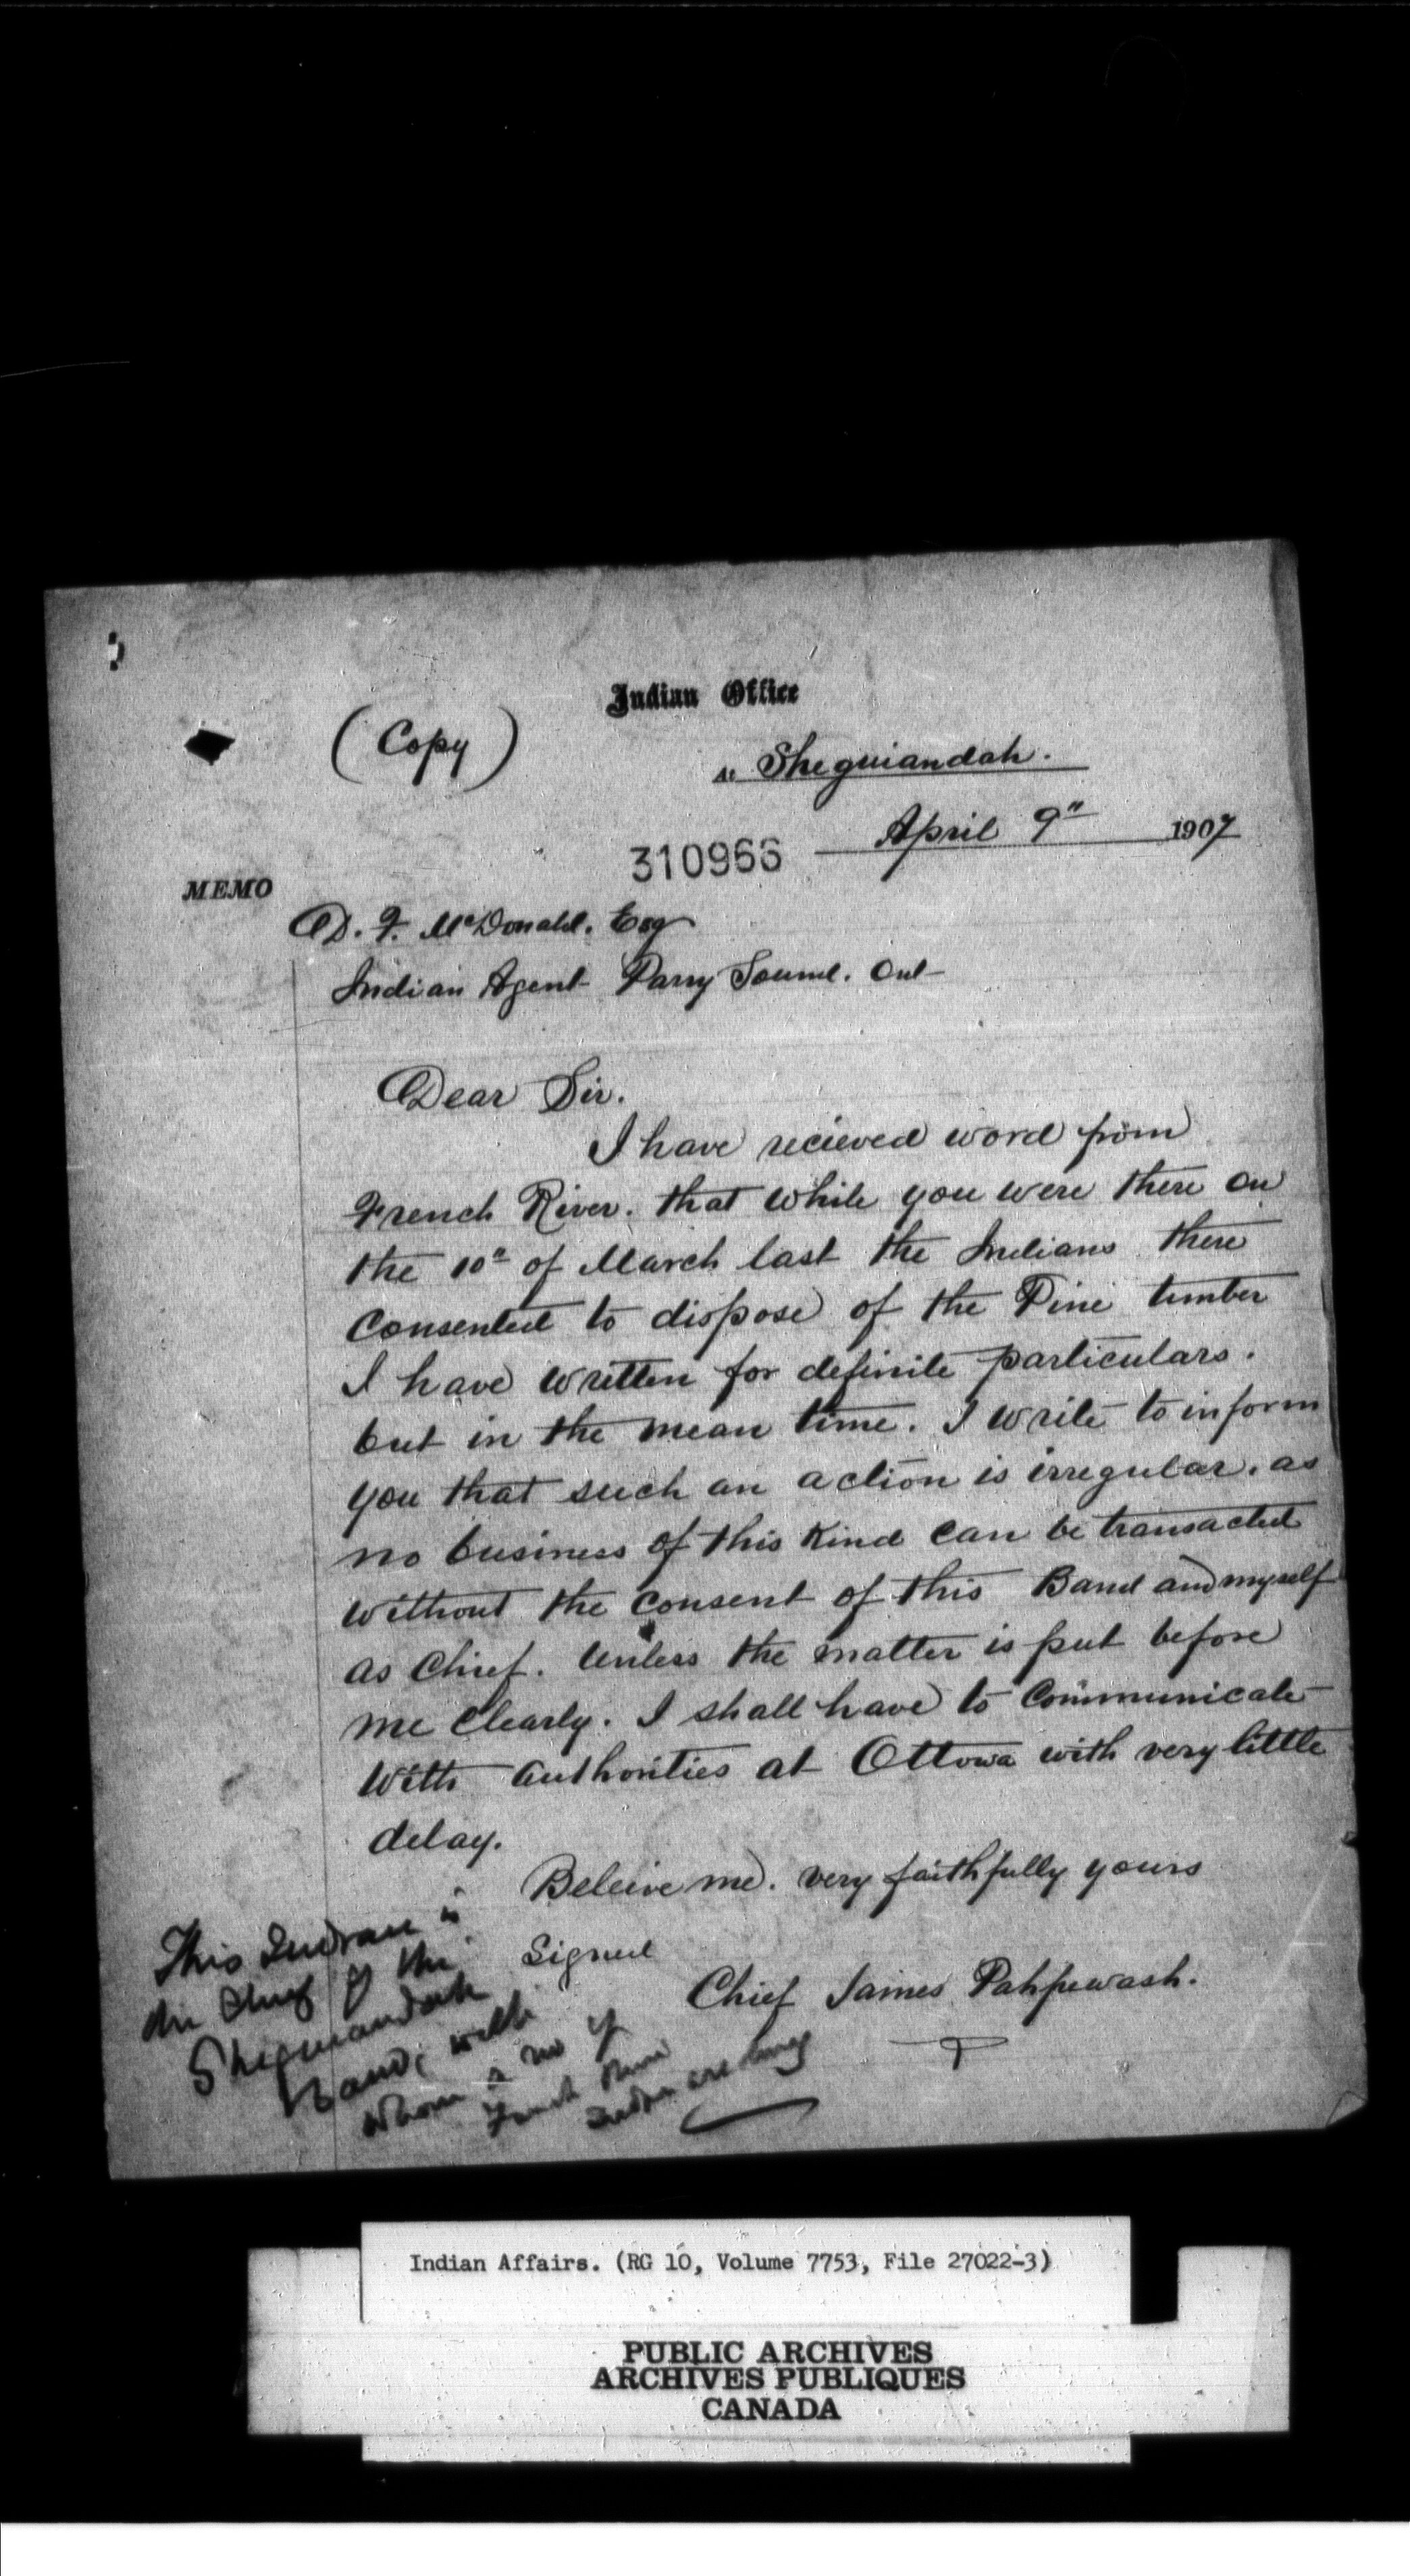 Indian Office
(Copy)
at Sheguiandah.
April 9" 1907
310966
MEMO
D. F. McDonald. Esq
Indian Agent Parry Sound. Ont
Dear Sir.
I have recieved word from
French River. that while you were there on
the 10" of March last the Indians there
consented to dispose of the Pine timber
I have written for definite particulars.
but in the mean time. I write to inform
you that such an action is irregular. as
no business of this Kind can be transacted
without the consent of this Band and myself
as Chief. Unless the matter is put before
me Clearly. I shall have to Communicate
with authorities at Ottowa with very little
delay.
Beleive me. very faithfully yours
Signed
Chief James Pahpewash.
This Indian is
the Chief of the
Sheguiandah
Band, with
whom
French River
Indian
Indian Affairs. (RG 10, Volume 7753, File 27022-3)
PUBLIC ARCHIVES
ARCHIVES PUBLIQUES
CANADA